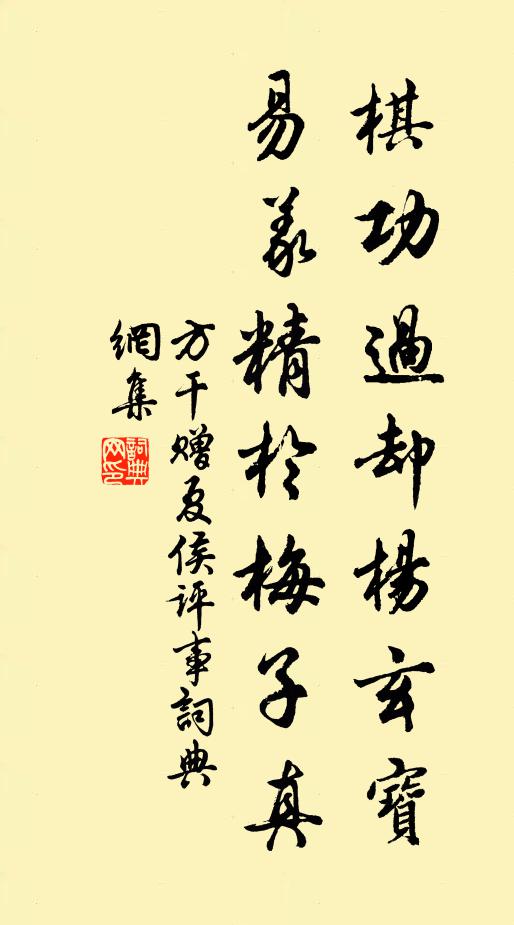 棋功過却楊玄寶
易義精於梅子真
方干贈夏侯評事詞典
網集
詞典
網印